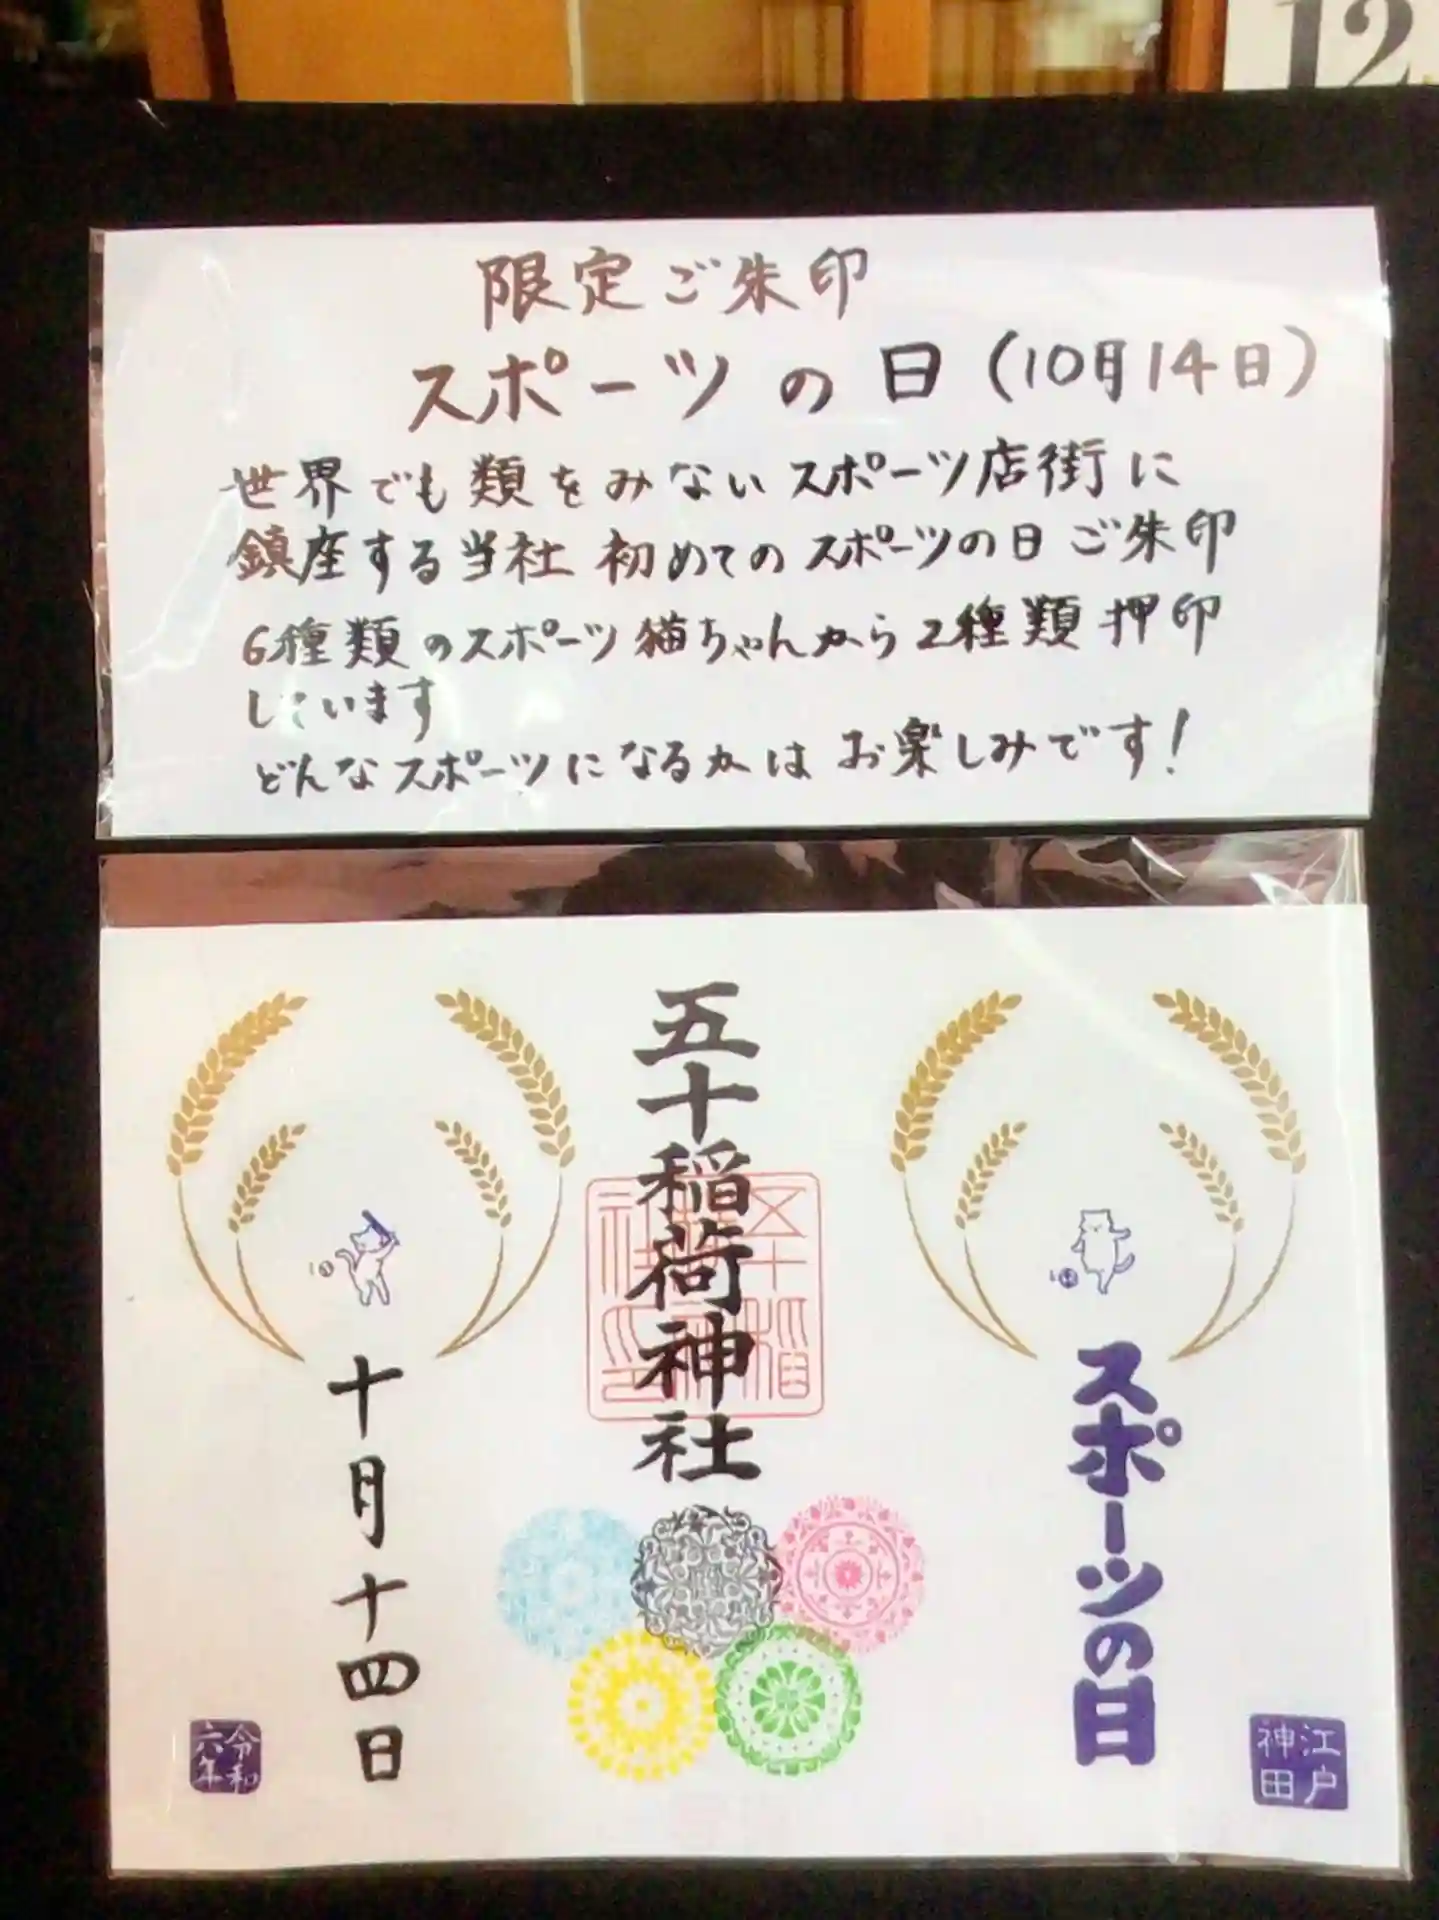 12
限定ご朱印
スポーツの日(10月14日)
世界でも類をみないスポーツ店街に
鎮座する当社 初めてのスポーツの日 ご朱印
6種類のスポーツ猫ちゃんから2種類押印
しています
どんなスポーツになるかは お楽しみです!
スポーツの日
江戸
神田
五十稲荷神社
十月十四日
令和
六年